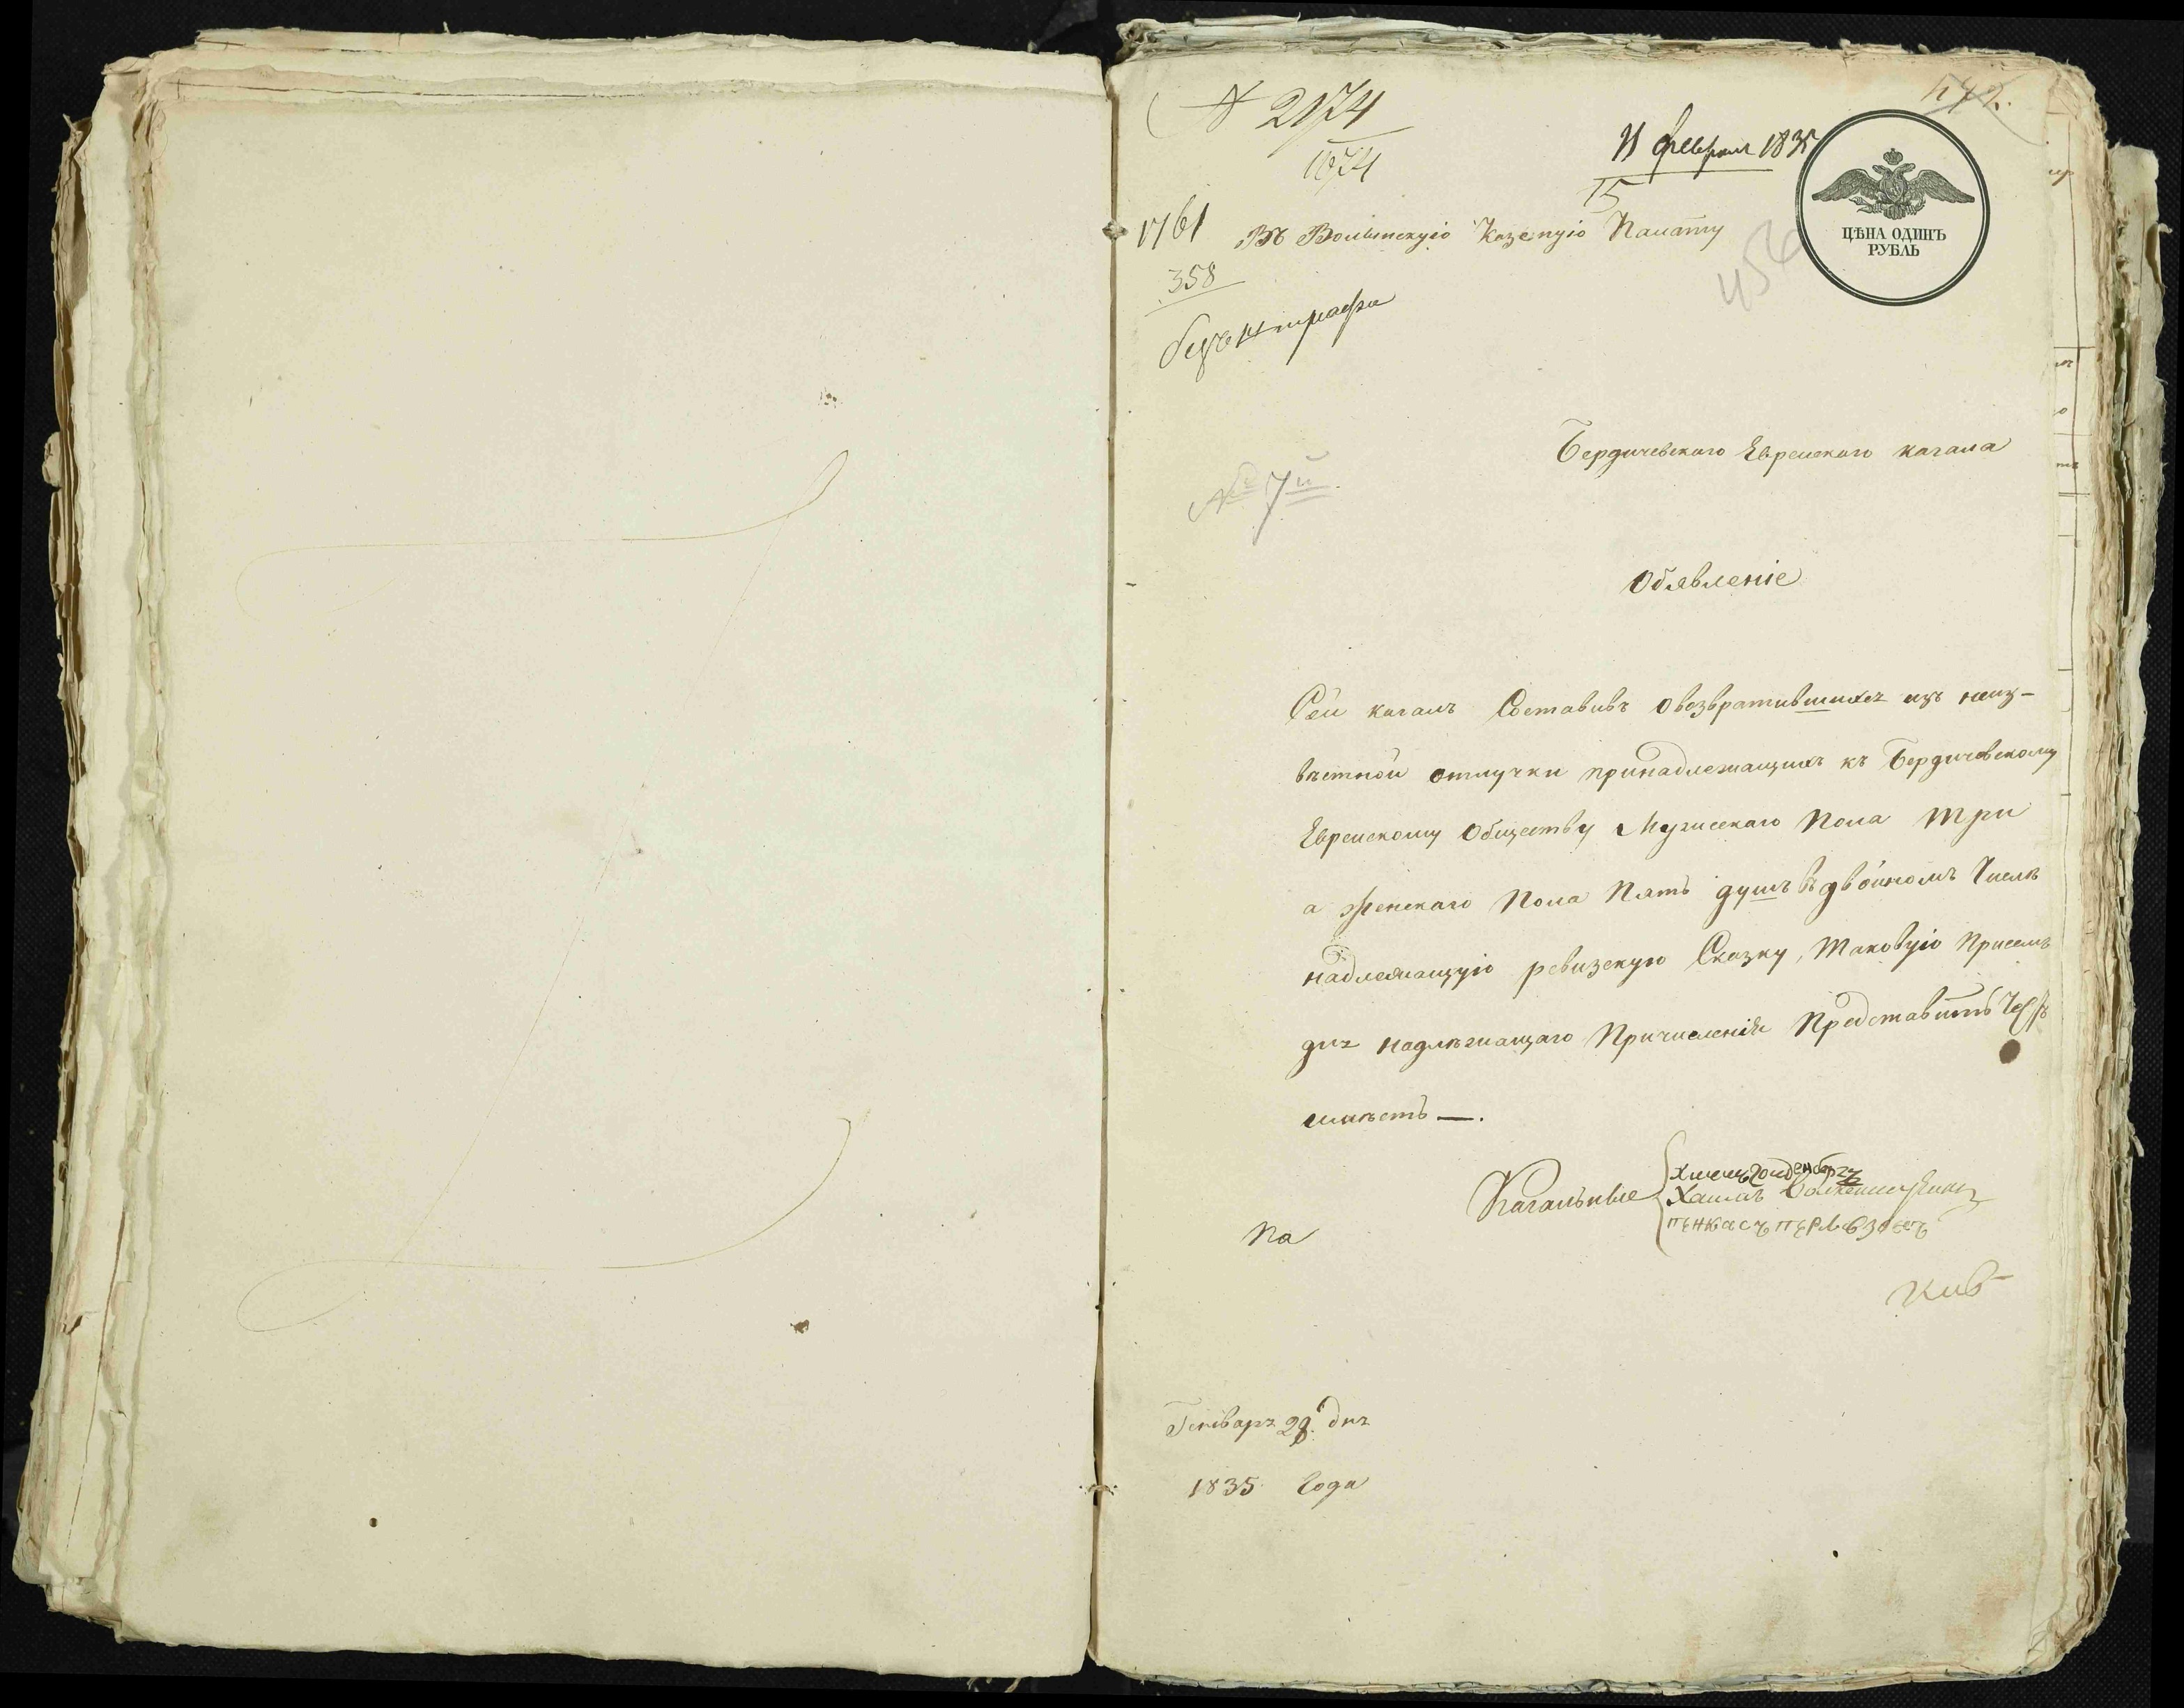 № 2174
1074
11 февраля 1835
15
ЦѢНА ОДИНЪ
РУБЛЬ
1761
Въ Волынскую Казенную Палату
358
456
безъ штрафа
Бердичевского Еврейского кагала
№ 7й.
Обявленіе
Сей кагалъ Составивъ овозвратившихся изъ неиз-
вѣстной отлучки принадлежащихъ къ Бердичевскому
Еврейскому Обществу Мужескаго Пола три
а Женскаго Пола Пять душъ въ двойномъ Числѣ
надлежащую ревизскую Сказку, таковую Присемъ
для надлѣжащаго Причисленія Представить Честь
имѣетъ —.
Кагальные
Па
Генваря 28. дня
1835 Года